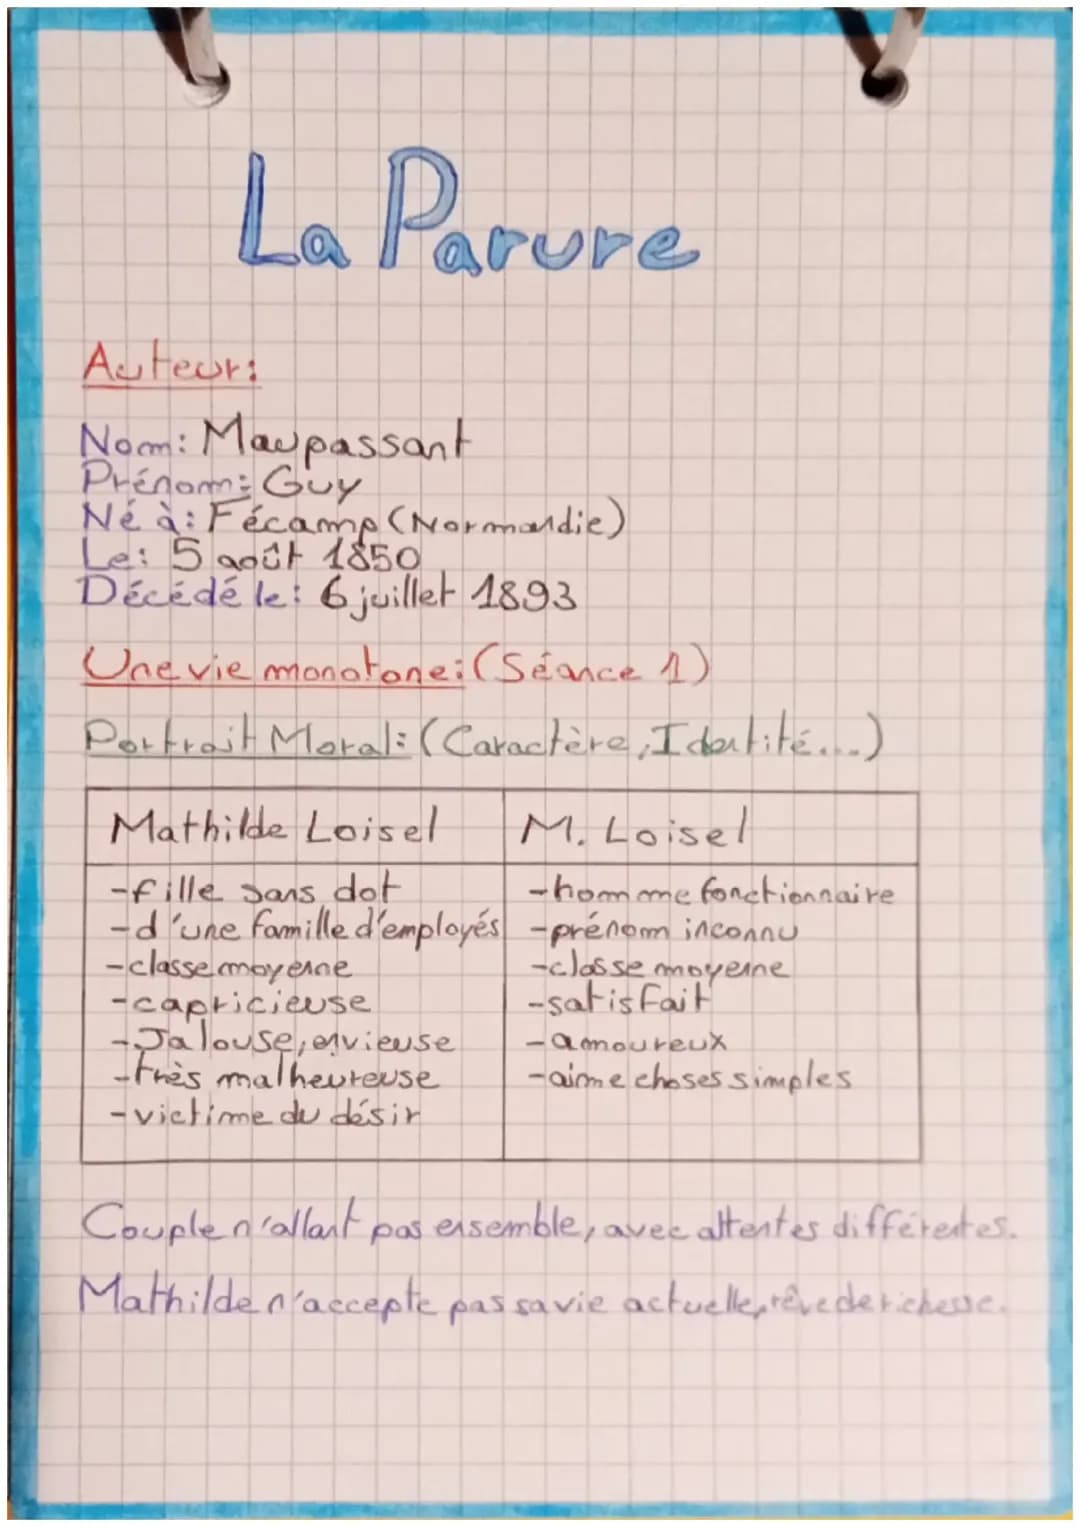 La Parure
Auteur:
Nom: Maupassant
Prénom: Guy
Né à: Fécamp (Normandie)
Le: 5 août 1850
Décédé le: 6 juillet 1893
Une vie monotone: (Séance 1)
Portrait Moral: (Caractère, Identité...)
Mathilde Loisel
M. Loisel
-fille sans dot
-d'une famille d'employés
-classe moyenne
-capricieuse
-Jalouse, envieuse
-très malheureuse
-victime du désir
-homme fonctionnaire
-prénom inconnu
-classe moyenne
-satisfait
-amoureux
-aime choses simples
Couple n'allant pas ensemble, avec attentes différentes.
Mathilde n'accepte pas sa vie actuelle, rêve de richesse.